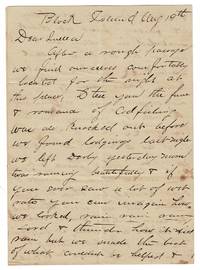 Block Island Aug 19th
Dear Luella
After a rough passage
we find ourselves comfortably
located for the night at
this place, I tell you the fun
& romance of Codfishing
was all knocked out before
we found lodgings last night
we left Derby yesterday morn
was raining beautifully & if
you ever saw a lot of wet
rats you can imagine how
we looked, rain rain rain
Lord & thunder how it did
rain but we made the best
of what couldn't be helped &